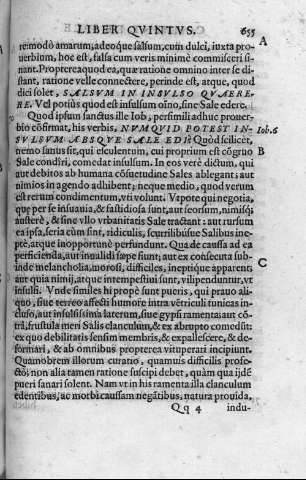 LIBER QVINTVS. 655
A
re modò amarum, adeoque salsum, cum dulci, iuxta pro-
uerbium, hoc est, falsa cum veris minimè commisceri si-
nant. Propterea quod ea, quæ ratione omnino inter se di-
stant, ratione velle connectere, perinde est, atque, quod
dici solet, SALSVM IN INSVLSO QVAERE-
RE. Vel potiùs quod est insulsum oĩno, sine Sale edere.
Quod ipsum sanctus ille Iob, persimili adhuc prouer-
bio cõfirmat, his verbis, NVMQVID POTEST IN- Iob. 6
B SVLSVM ABSQVE SALE EDI? Quòd scilicet,
nemo sanus sit, qui esculentum, cui proprium est cõgruo
Sale condiri, comedat insulsum. In eos verè dictum, qui
aut debitos ab humana cõsuetudine Sales ablegant: aut
nimios in agendo adhibent; neque medio, quod verum
est rerum condimentum, vti volunt. Vtpote qui negotia,
quę per se insuauia, & fastidiosa sunt, aut seorsum, nimisq́
austerè, & sine vllo vrbanitatis Sale tractant: aut rursum
ea ipsa, seria cùm sint, ridiculis, scurrilibusue Salibus ine-
ptè, atque inopportunè perfundunt. Qua de caussa ad ea
perficienda, aut inualidi sæpe fiunt; aut ex consecuta sub-
C
inde melancholia, morosi, difficiles, ineptique apparent:
aut quia nimij, atque intempestiui sunt, vilipenduntur, vt
insulsi. Vnde similes hi propè sunt pueris, qui prauo ali-
quo, siue terreo affecti humore intra vẽtriculi tunicas in-
cluso, aut insulsissima laterum, siue gypsi ramenta aut cõ-
trà, frustula meri Salis clanculum, & ex abrupto comedũt:
ex quo debilitatis sensim membris, & expallescere, & de-
formari, & ab omnibus propterea vituperari incipiunt.
Quamobrem illorum curatio, quamuis difficilis profe-
ctò; non alia tamen ratione suscipi debet, quàm qua ijdẽ
pueri sanari solent. Nam vt in his ramenta illa clanculum
edentibus, ac morbi caussam negãtibus, natura prouida,
Q q 4 indu-